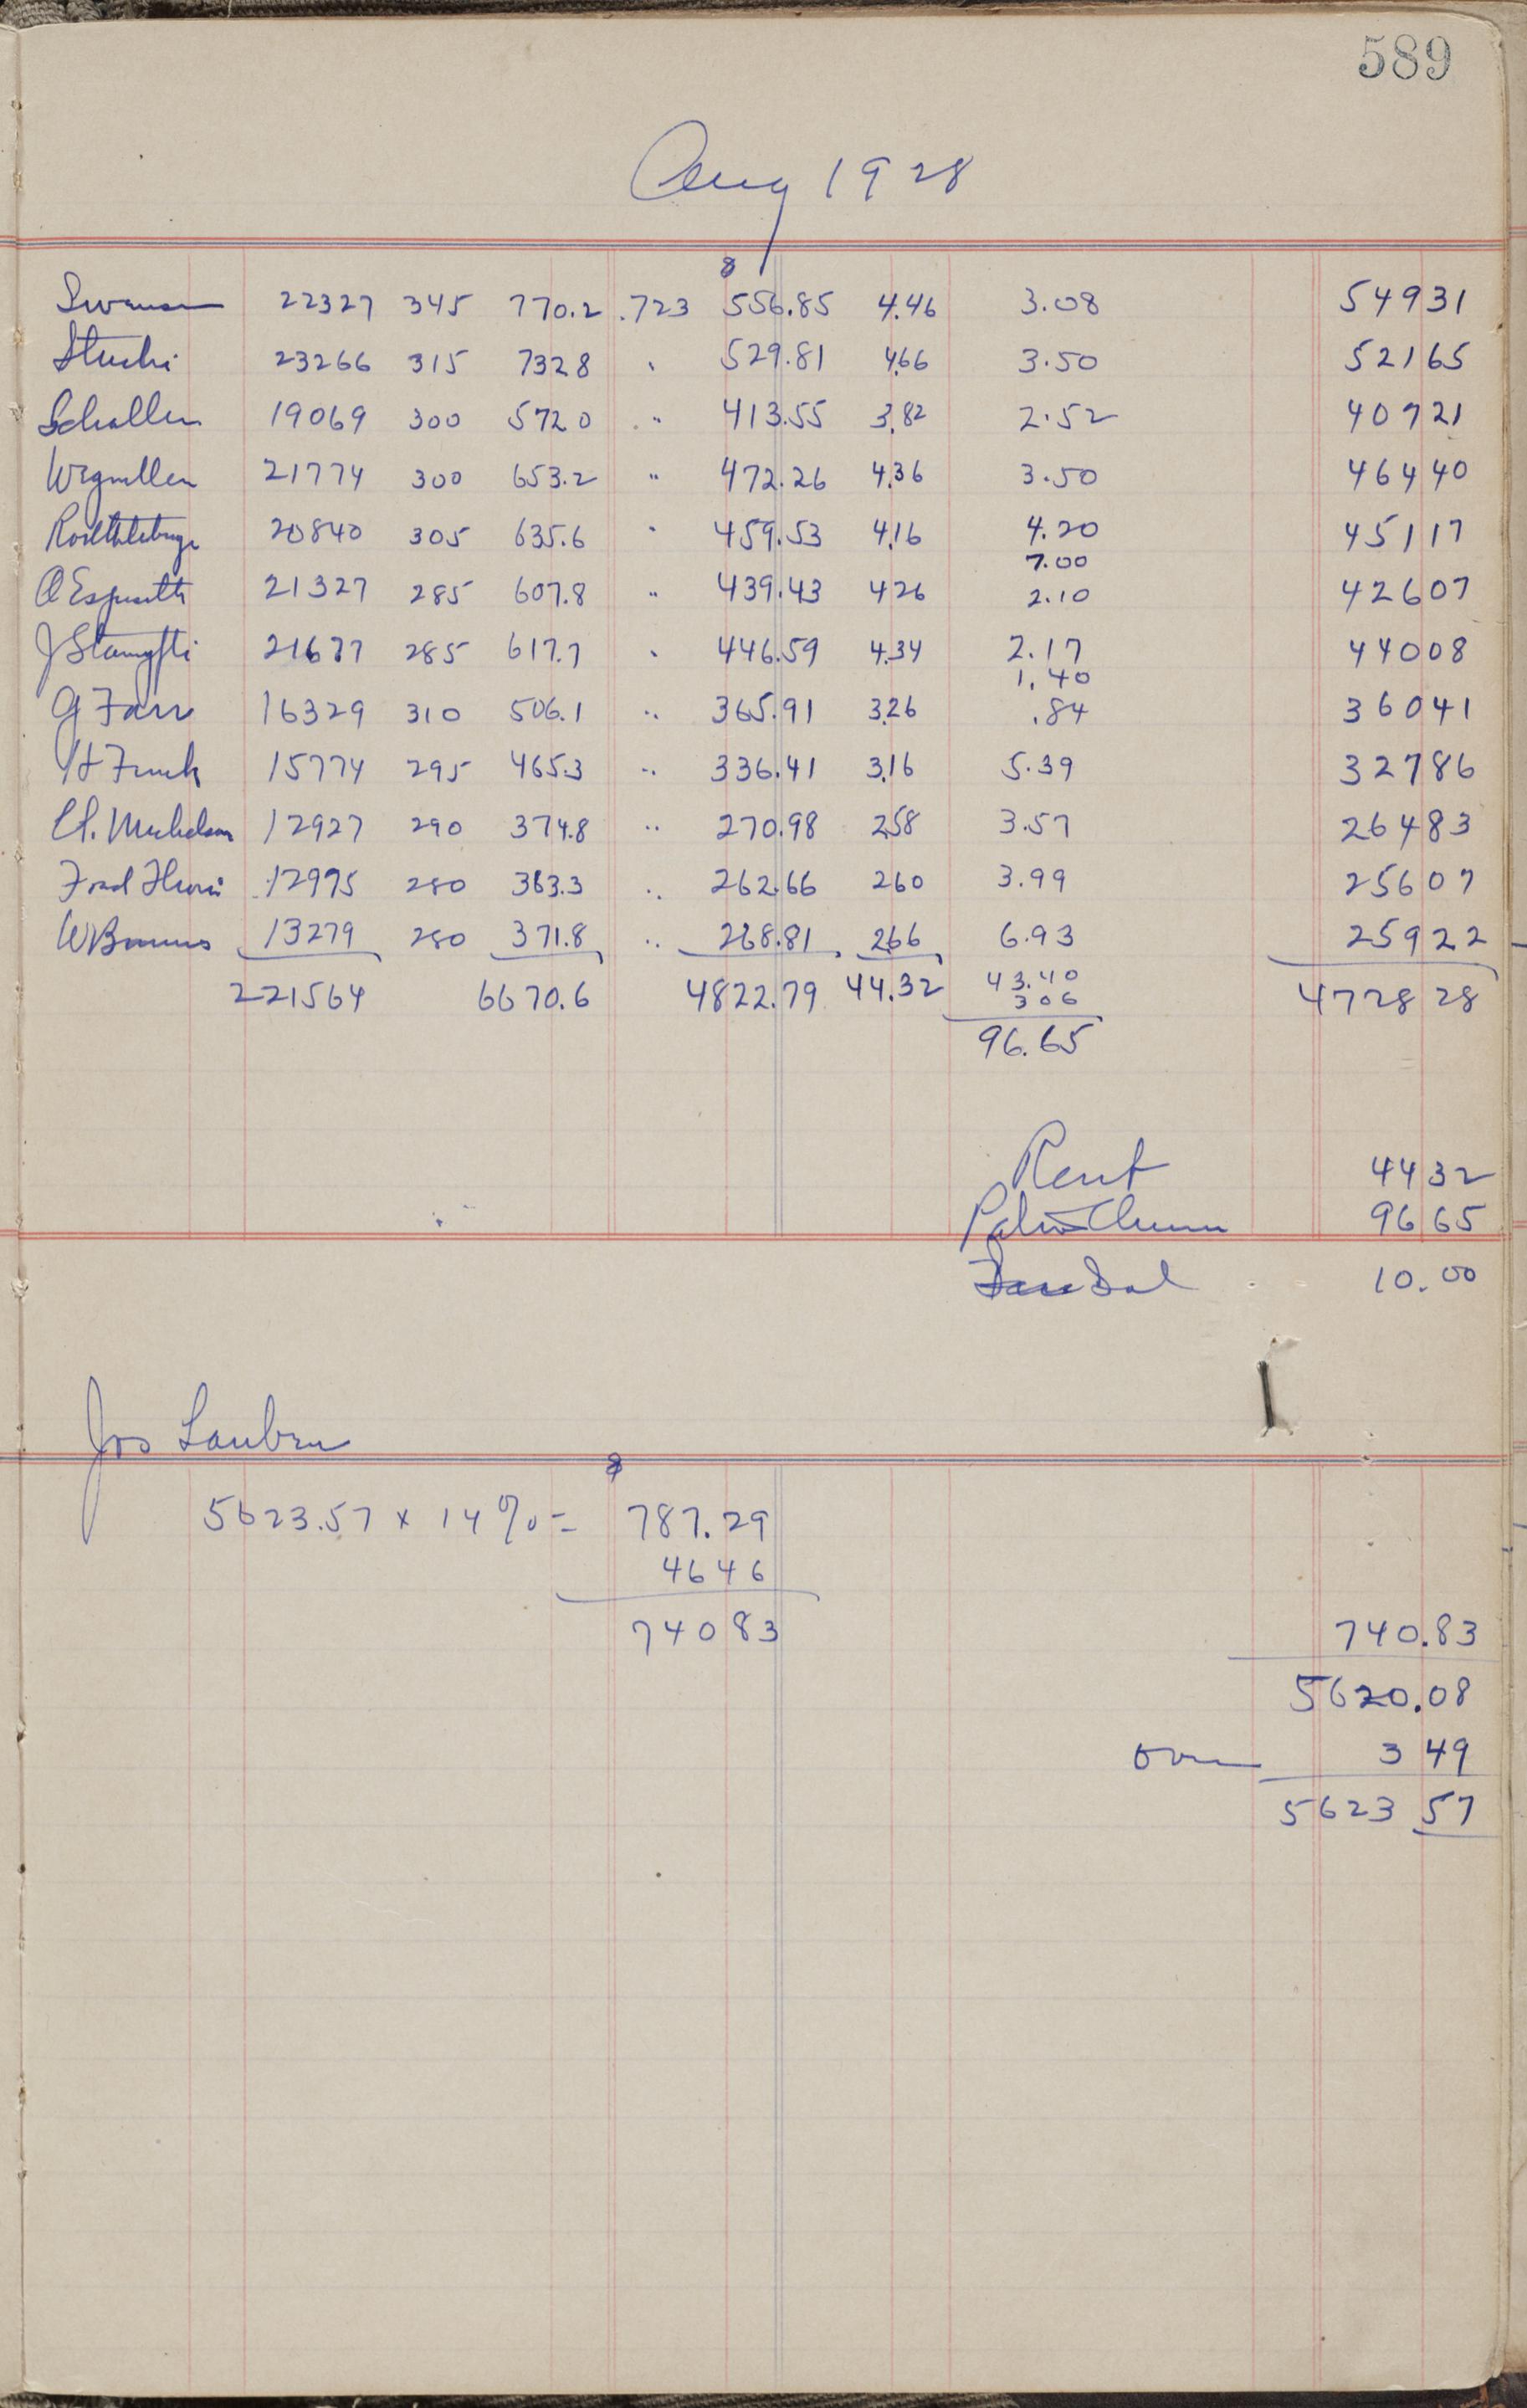 589
Aug 1928
$
Swanson 22327 345 770.2 .723 556.85 4.46 3.08 54931
Stucki 23266 315 732 8 " 529.81 4.66 3.50 52165
Schallen 19069 300 572 0 " 413.55 3.82 2.52 40721
21774 300 653.2 " 472.26 4.36 3.50 46440
20840 305 635.6 " 459.53 4.16 4.20 45117
7.00
21327 285 607.8 " 439.43 426 2.10 42607
J 21677 285 617.7 " 446.59 4.34 2.17 44008
1.40
G Farr 16329 310 506.1 " 365.91 3.26 .84 36041
H Funk 15774 295 465.3 " 336.41 3.16 5.39 32786
12927 290 374.8 " 270.98 258 3.57 26483
Fred 12975 280 363.3 " 262.66 260 3.99 25607
W 13279 280 371.8 " 268.81 266 6.93 25922
221564 6670.6 4822.79 44.32 43.40 4728 28
306
96.65
Rent 44 32
96 65
10.00
Jos
$
5623.57 x 14% = 787.29
46 46
740 83
740.83
5620.08
over 3 49
5623 57